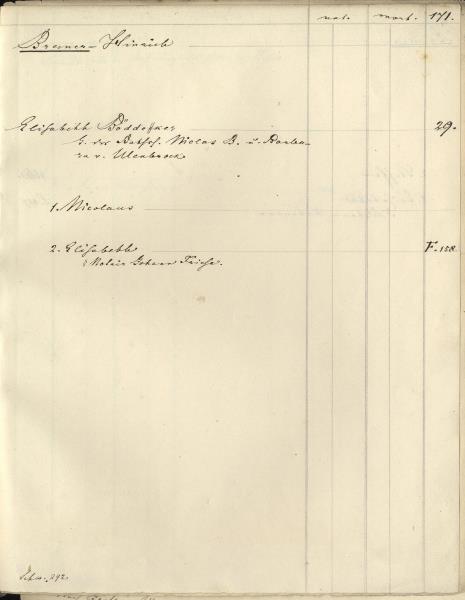 nat. mort. 171.
Bremer Hinrich
Elisabeth Böddeker 29.
d. Rathsh. Niclas B. u. Barba-
ra v. Ulenbrock
1. Nicolaus
2. Elisabeth F. 158.
Johann Friese.
292.